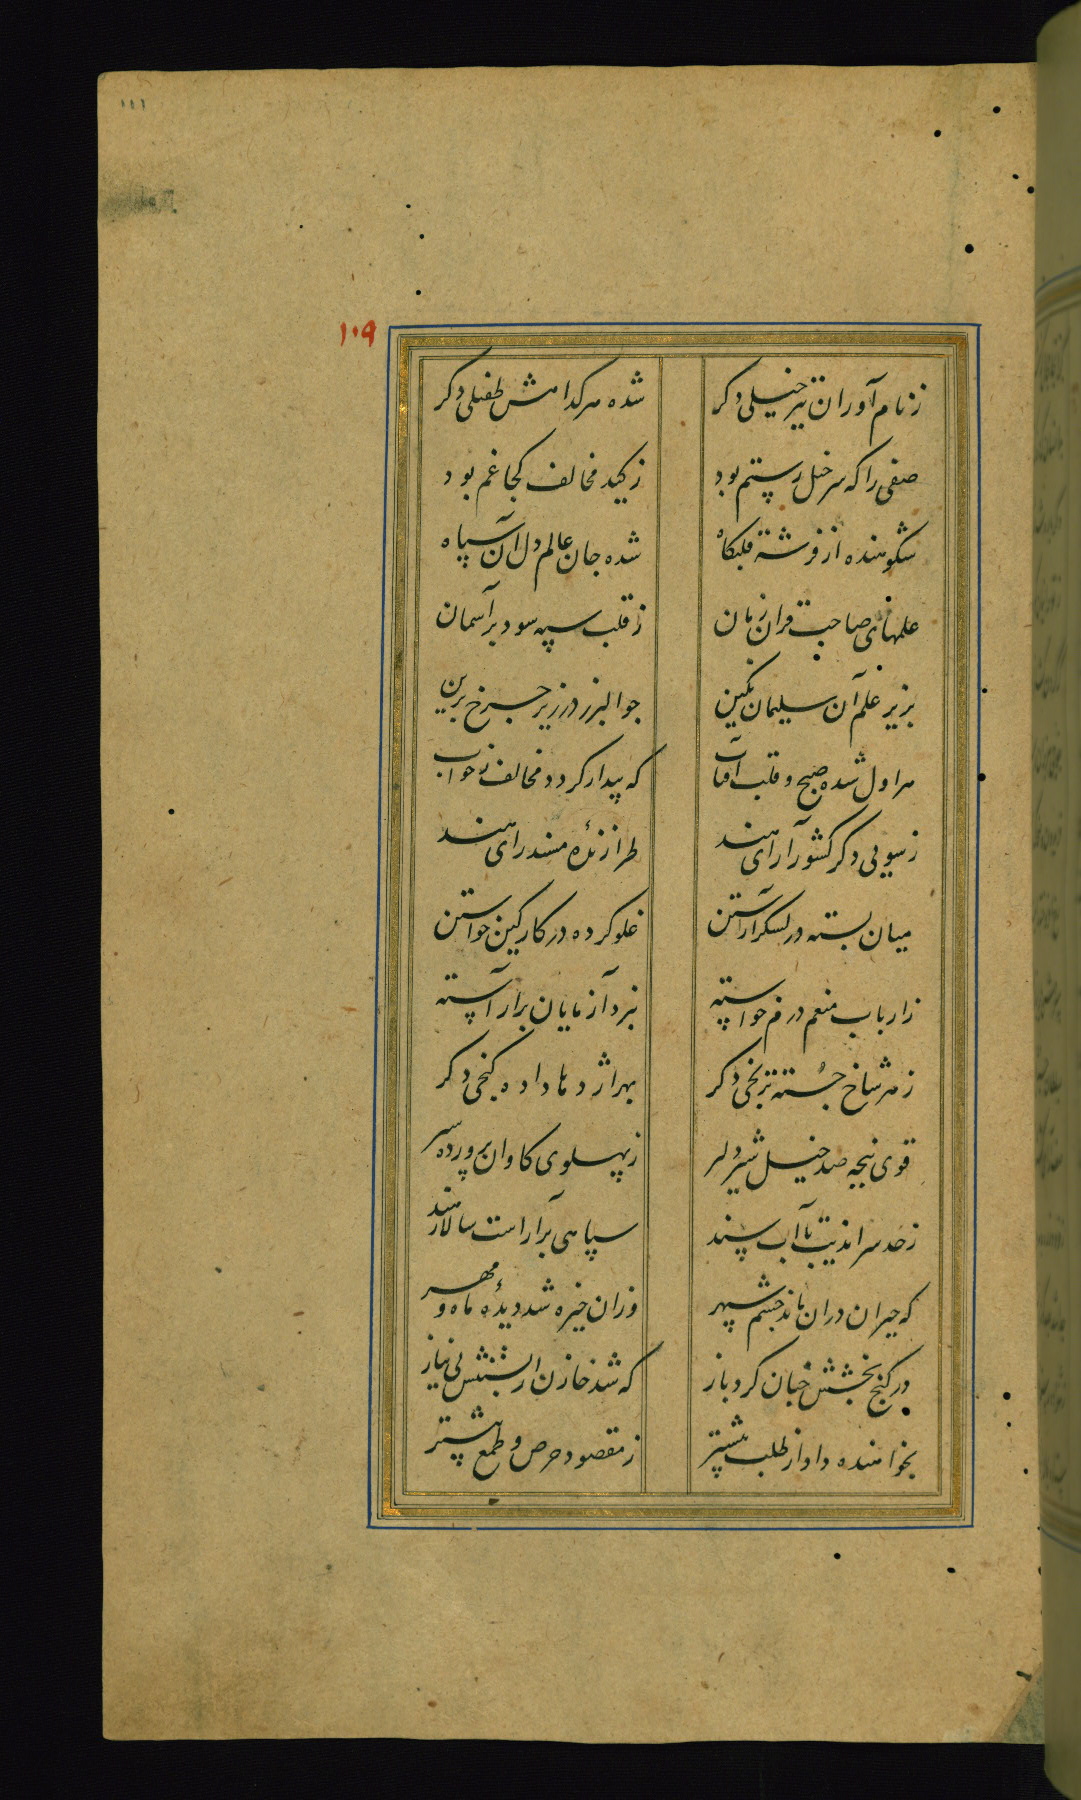 ۱۱۱
۱۰۹
زنام آوران نیز خیلی دکر شده هر کدامش طفیلی دکر
صفی را که سرخیل رستم بود زکید مخالف کجا غم بود
شکوهنده از فر شه قلبکاه شده جان عالم دل آن سپاه
علمهای صاحب قران زمان ز قلب سپه سود بر آسمان
بزیر علم آن سلیمان نکین چو البرز در زیر چرخ برین
هراول شده صبح و قلب آفتاب که بیدار کردد مخالف ز خواب
زسویی دکر کشور آرای هند طرازندهٔ مسند رای هند
میان بسته در لشکر آراستن غلو کرده در کار کین خواستن
زارباب منعم درم خواسته نبرد آزمایان برآراسته
زهر شاخ جسته ترنجی دکر بهر اژدها داده کنجی دکر
قوی پنجه صد خیل شیر دلیر زپهلوی کاوان پرورده سیر
زحد سراندیب تا آب سند سپاهی برآراست سالار هند
که حیران دران ماند چشم سپهر وزان خیره شد دیدهٔ ماه و مهر
در کنج بخشش چنان کرد باز که شد خازن از بخشش بی نیاز
بخواهنده داد از طلب بیشتر زمقصود حرص و طمع بیشتر